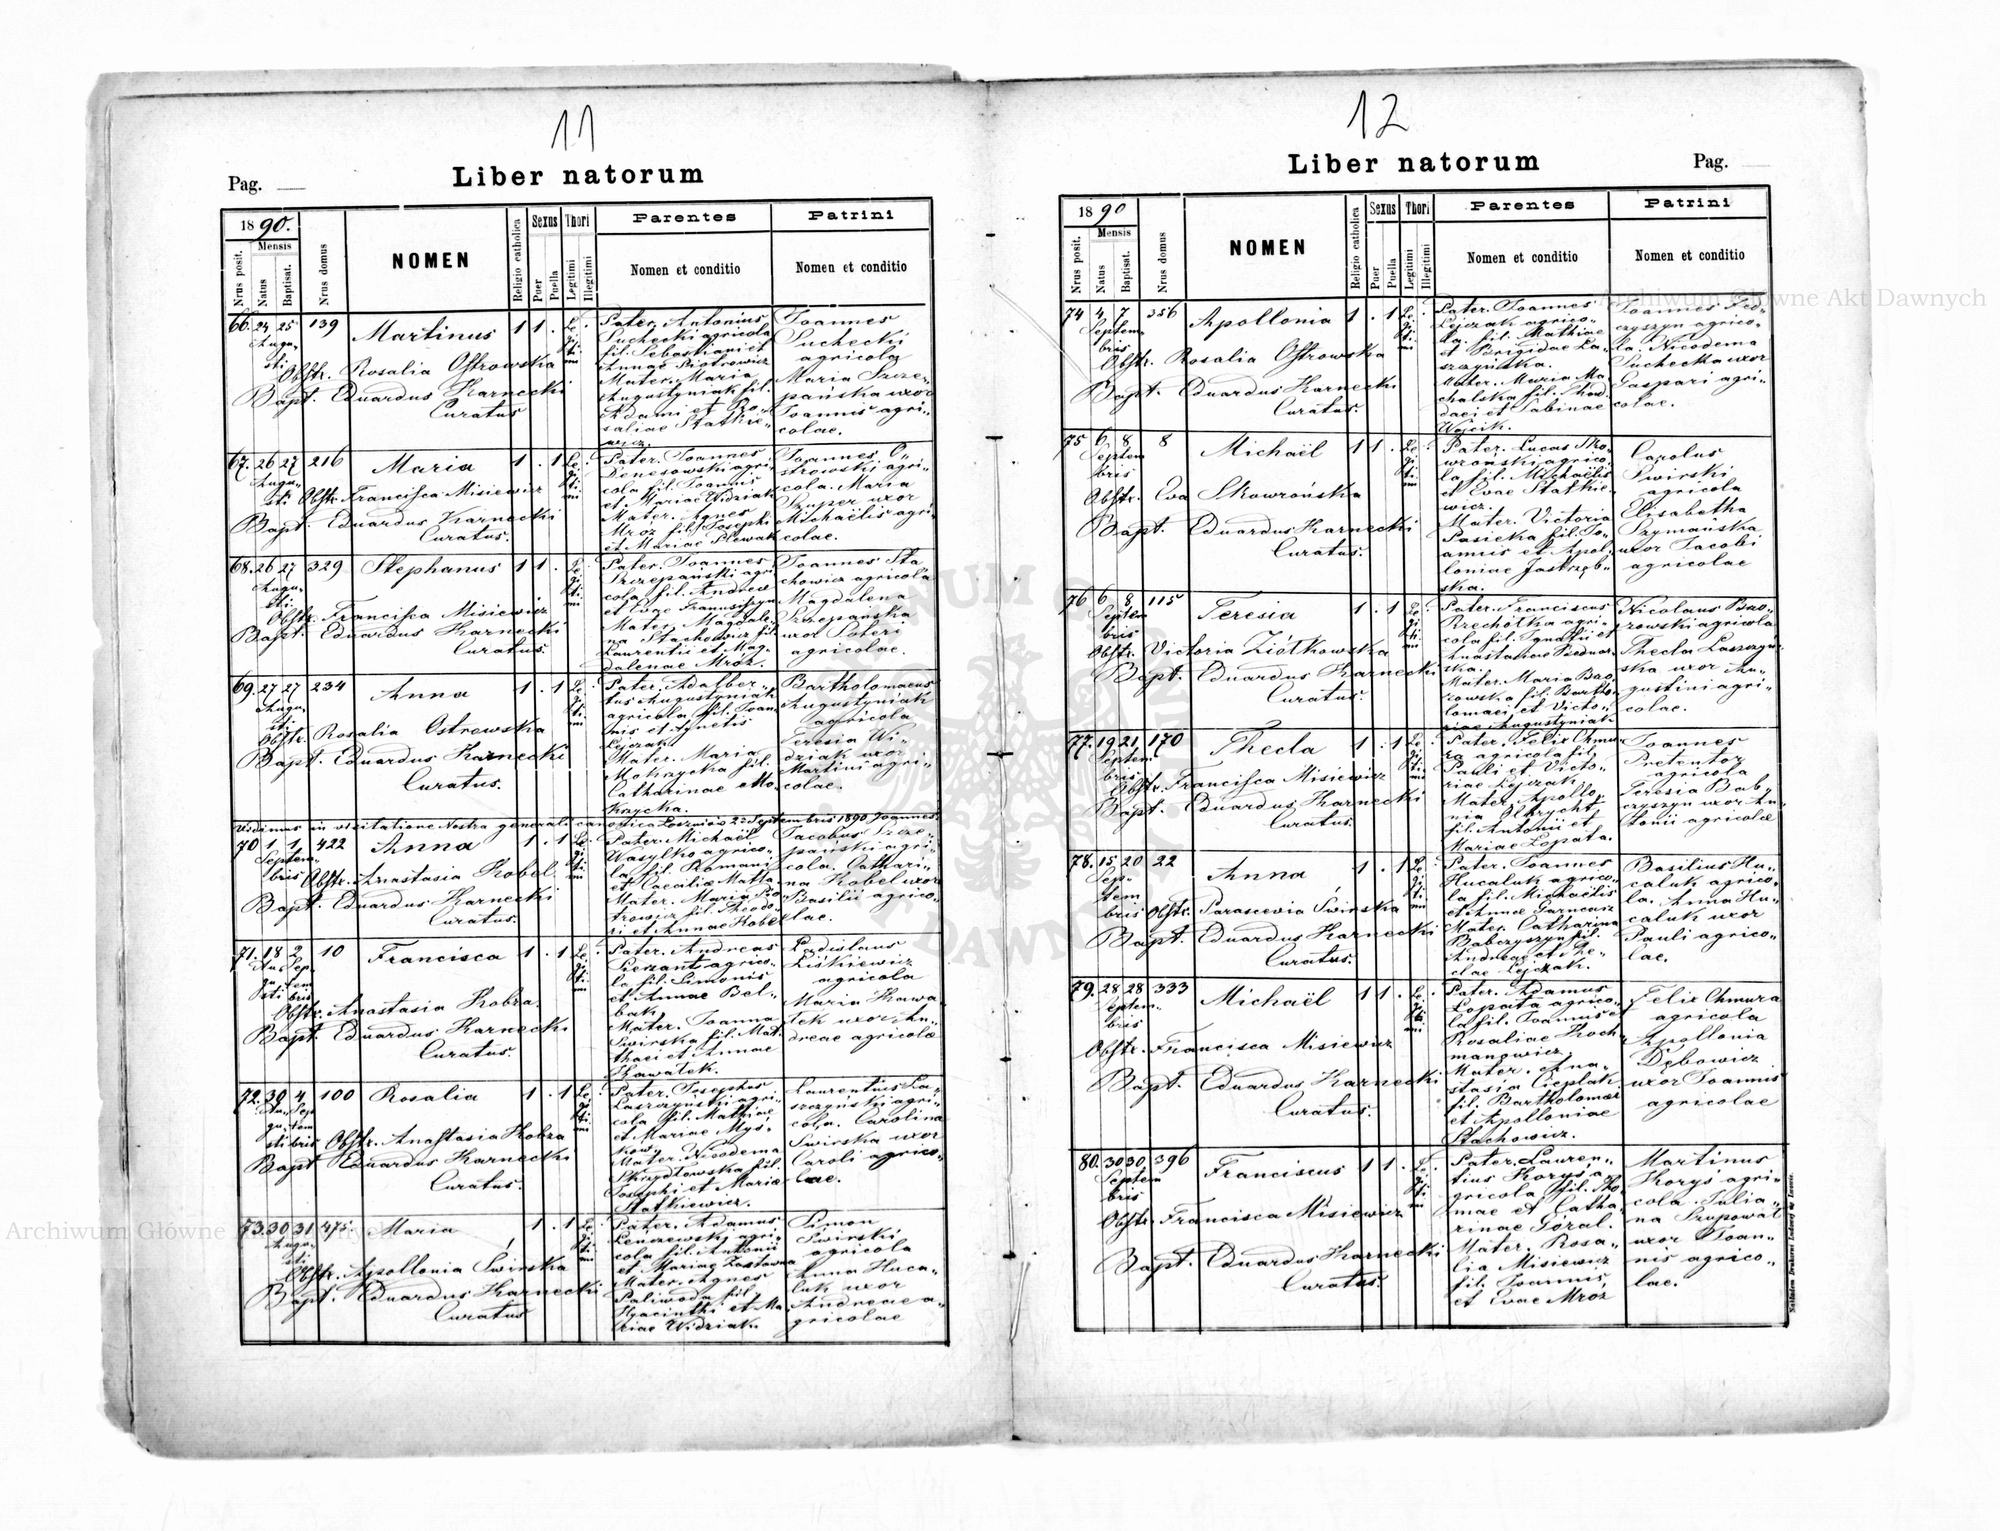 11
Liber natorum
Pag.
1890.
Mensis
Nrus posit.
Natus
Baptisat.
Nrus domus
NOMEN
Religio catholica
Sexus
Puer
Puella
Thori
Legitimi
Illegitimi
Parentes
Nomen et conditio
Patrini
Nomen et conditio
66. 24 25 139 Martinus 1 1 .
Augu-
sti
Obstr. Rosalia Ostrowska
Bapt. Eduardus Karnecki
Curatus
Le-
gi
ti
mi
Pater. Antonius
Suchecki agricola
fil. Sebastiani et
Annae Piotrowicz
Mater. Maria
Augustyniak fil.
Adami et Ro-
saliae Statkie-
wicz.
Joannes
Suchecki
agricola
Maria Szcze-
pańska uxor
Joannis agri-
colae.
67. 26 27 216 Maria 1 . 1
Augu-
sti Obstr. Francisca Misiewicz
Bapt. Eduardus Karnecki
Curatus.
Le-
gi
ti
mi
Pater. Joannes
Denesowski agri-
cola fil. Joannis
et Mariae Widziak
Mater. Agnes
Mróz fil. Josephi
et Mariae Slewak
Joannes O-
strowski agri-
cola. Maria
Szuper uxor
Michaëlis agri-
colae.
68. 26 27 329 Stephanus 1 1 .
Augu-
sti
Obstr. Francisca Misiewicz
Bapt. Eduardus Karnecki
Curatus.
Le-
gi
ti
mi
Pater. Joannes
Szczepański agri
cola fil. Andreae
et Evae
Mater. Magdale-
na Stachowicz fil.
Laurentii et Mag-
dalenae Mróz.
Joannes Sta
chowicz agricola
Magdalena
Szczepańska
uxor Petri
agricolae.
69. 27 27 234 Anna 1 . 1
Augu-
sti
Obstr. Rosalia Ostrowska
Bapt. Eduardus Karnecki
Curatus.
Le-
gi
ti
mi
Pater. Adalber-
tus Augustyniak
agricola fil. Joan-
nis et Agnetis
Lejczak
Mater. Maria
Mokrzycka fil.
Catharinae Mo-
krzycka.
Bartholomaeus
Augustyniak
agricola
Teresia Wi-
dziak uxor
Martini agri-
colae.
Vidimus in visitatione Nostra generali canonica 23 Septembris 1890 Joannes
70 1 1 422 Anna 1 . 1
Septem-
bris Obstr. Anastasia Kobel
Bapt. Eduardus Karnecki
Curatus.
Le-
gi
ti
mi
Pater. Michaël
Wasylko agrico-
la fil. Romani
et Caeciliae Matla
Mater. Maria Pio
trowicz fil. Theodo-
ri et Annae Kobel
Jacobus Szcze-
pański agri-
cola. Cathari-
na Kobel uxor
Basilii agrico-
lae.
71. 18 2 10 Francisca 1 . 1
Au- Sep-
gu- tem
sti bris
Obstr. Anastasia Kobza.
Bapt. Eduardus Karnecki
Curatus.
Le-
gi
ti
mi
Pater. Andreas
Sierzant agrico-
la fil. Simonis
et Annae Bel-
bak
Mater. Joanna
Swirska fil. Mat-
thaei et Annae
Kawałek.
Ladislaus
Liśkiewicz
agricola
Maria Kawa-
łek uxor An-
dreae agricolae
72. 30 4 100 Rosalia 1 . 1
Au- Sep
gu- tem
sti bris Obstr. Anastasia Kobza
Bapt Eduardus Karnecki
Curatus.
Le-
gi
ti
mi
Pater. Josephus
Laszczyński agri-
cola fil. Mathiae
et Mariae Myś-
ków.
Mater. Nicodema
Skrydłowska fil.
Josephi et Mariae
Statkiewicz.
Laurentius La-
szczyński agri-
cola. Carolina
Swirska uxor
Caroli agrico-
lae.
73 30 31 475 Maria 1 . 1
Augu-
sti
Obstr. Apollonia Świrska
Bapt. Eduardus Karnecki
Curatus
Le-
gi
ti
mi
Pater. Adamus
Lenczewski agri-
cola fil. Antonii
et Mariae
Mater. Agnes
Paliwoda fil.
Hyacinthi et Ma
riae Widziak.
Simon
Swirski
agricola
Anna Huca-
luk uxor
Andreae a-
gricolae
12
Liber natorum
Pag.
1890
Mensis
Nrus posit.
Natus
Baptisat.
Nrus domus
NOMEN
Religio catholica
Sexus
Puer
Puella
Thori
Legitimi
Illegitimi
Parentes
Nomen et conditio
Patrini
Nomen et conditio
74 4 7 356 Apollonia 1 . 1
Septem-
bris
Obstr. Rosalia Ostrowska
Bapt. Eduardus Karnecki
Curatus.
Le-
gi
ti
mi
Pater. Joannes
Lejczak agrico-
la fil. Mathiae
et Brigidae La-
szczyńska.
Mater. Maria Ma
chalska fil. Thad-
daei et Sabinae
Wójcik.
Joannes Fed-
czyszyn agrico-
la. Nicodema
Suchecka uxor
Gaspari agri-
colae.
75 6 8 8 Michaël 1 1 .
Septem
bris
Obstr. Eva Skowrońska
Bapt. Eduardus Karnecki
Curatus.
Le-
gi
ti
mi
Pater. Lucas Sko-
wroński agrico-
la fil. Michaëlis
et Evae Statkie-
wicz.
Mater. Victoria
Pasicka fil. Jo-
annis et Apol-
loniae Jastrzęb-
ska.
Carolus
Swirski
agricola
Elisabetha
Szymańska
uxor Jacobi
agricolae
76 6 8 115 Teresia 1 . 1
Septem
bris
Obstr. Victoria Ziółkowska
Bapt. Eduardus Karnecki
Curatus.
Le-
gi
ti
mi
Pater. Franciscus
Rzechótka agri-
cola fil. Ignatii et
Anastasiae Bednar-
ska.
Mater. Maria Bao-
rowska fil. Bartho-
lomaei et Victo-
riae Augustyniak
Nicolaus Bao-
rowski agricola
Thecla Laszczyń-
ska uxor Au-
gustini agri-
colae.
77. 19 21 170 Thecla 1 . 1
Septem
bris
Obstr. Francisca Misiewicz
Bapt. Eduardus Karnecki
Curatus.
Le-
gi
ti
mi
Pater. Felix Chmu-
ra agricola fil.
Pauli et Victo-
riae Lejczak
Mater. Apollo-
nia Olbrycht
fil. Antonii et
Mariae Łopata.
Joannes
Pretentor
agricola
Teresia Bab-
czyszyn uxor An-
tonii agricolae
78. 15 20 22 Anna 1 . 1
Sep-
tem
bris Obstr. Parascevia Świrska
Bapt. Eduardus Karnecki
Curatus.
Le-
gi
ti
mi
Pater. Joannes
Hucaluk agrico-
la fil. Michaëlis
et Annae Garncarz
Mater. Catharina
Babczyszyn fil.
Andreae et The-
clae Lejczak.
Basilius Hu-
caluk agrico-
la. Anna Hu-
caluk uxor
Pauli agrico-
lae.
79. 28 28 333 Michaël 1 1 .
Septem-
bris
Obstr. Francisca Misiewicz
Bapt. Eduardus Karnecki
Curatus.
Le-
gi
ti
mi
Pater. Adamus
Łopata agrico-
la fil. Joannis et
Rosaliae Koch
manowicz
Mater. Ana-
stasia Cieplak
fil. Bartholomaei
et Apolloniae
Stachowicz.
Felix Chmura
agricola
Apollonia
Dębowicz
uxor Joannis
agricolae
80. 30 30 396 Franciscus 1 1 .
Septem
bris
Obstr. Francisca Misiewicz
Bapt. Eduardus Karnecki
Curatus.
Le-
gi
ti
mi
Pater. Lauren-
tius Korys a-
gricola fil. Tho-
mae et Catha-
rinae Góral.
Mater. Rosa-
lia Misiewicz
fil. Joannis
et Evae Mroz
Martinus
Korys agri-
cola. Julia-
na Szupował
uxor Joan-
nis agrico-
lae.
Archiwum Główne Akt Dawnych
Archiwum Główne Akt Dawnych